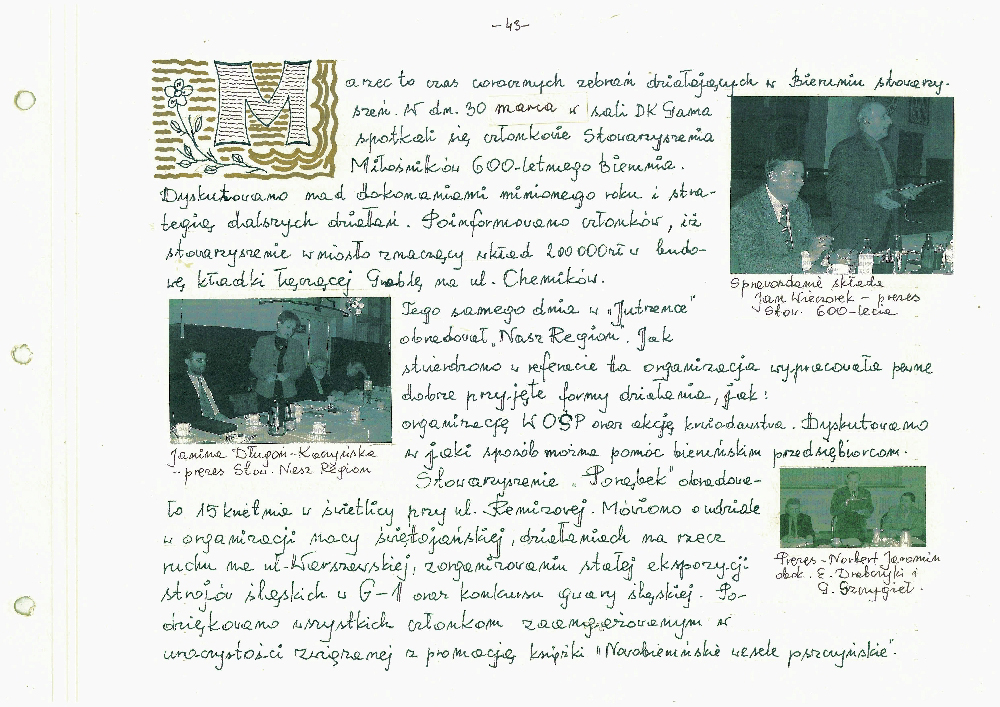 - 43 -
Marzec to czas corocznych zebrań działających w Bieruniu stowarzy-
szeń. W dn. 30 marca w sali DK Gama
spotkali się członkowie Stowarzyszenia
Miłośników 600-letniego Bierunia.
Dyskutowano nad dokonaniami minionego roku i stra-
tegią dalszych działań. Poinformowano członków, iż
stowarzyszenie wniosło znaczący wkład 200 000zł w budo-
wę kładki łączącej Groblę na ul. Chemików.
Sprawozdanie składa
Jan Wieczorek - prezes
Stow. 600-lecia
Tego samego dnia w "Jutrzence"
obradował "Nasz Region". Jak
stwierdzono w referacie ta organizacja wypracowała pewne
dobrze przyjęte formy działania, jak:
organizację WOŚP oraz akcję krwiodawstwa. Dyskutowano
w jaki sposób można pomóc bieruńskim przedsiębiorcom.
Janina Długoń-Kaczyńska
- prezes Stow. Nasz Region
Stowarzyszenie "Porąbek" obradowa-
ło 15 kwietnia w świetlicy przy ul. Remizowej. Mówiono o udziale
w organizacji nocy świętojańskiej, działaniach na rzecz
ruchu na ul. Warszawskiej, zorganizowaniu stałej ekspozycji
strojów śląskich w G-1 oraz konkursu gwary śląskiej. Po-
dziękowano wszystkich członkom zaangażowanym w
uroczystości związanej z promocją książki "Nowobieruńskie wesele pszczyńskie".
Prezes - Norbert Jaromin
obok. E. Drabczyk i
G. Szczygieł.